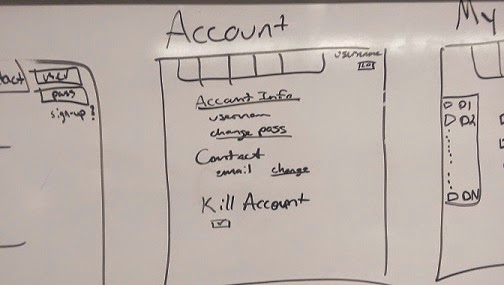 Account
My
user
pass
sign-up?
username
Account Info
usernam
change pass
Contact
email change
Kill Account
D1
D2
DN